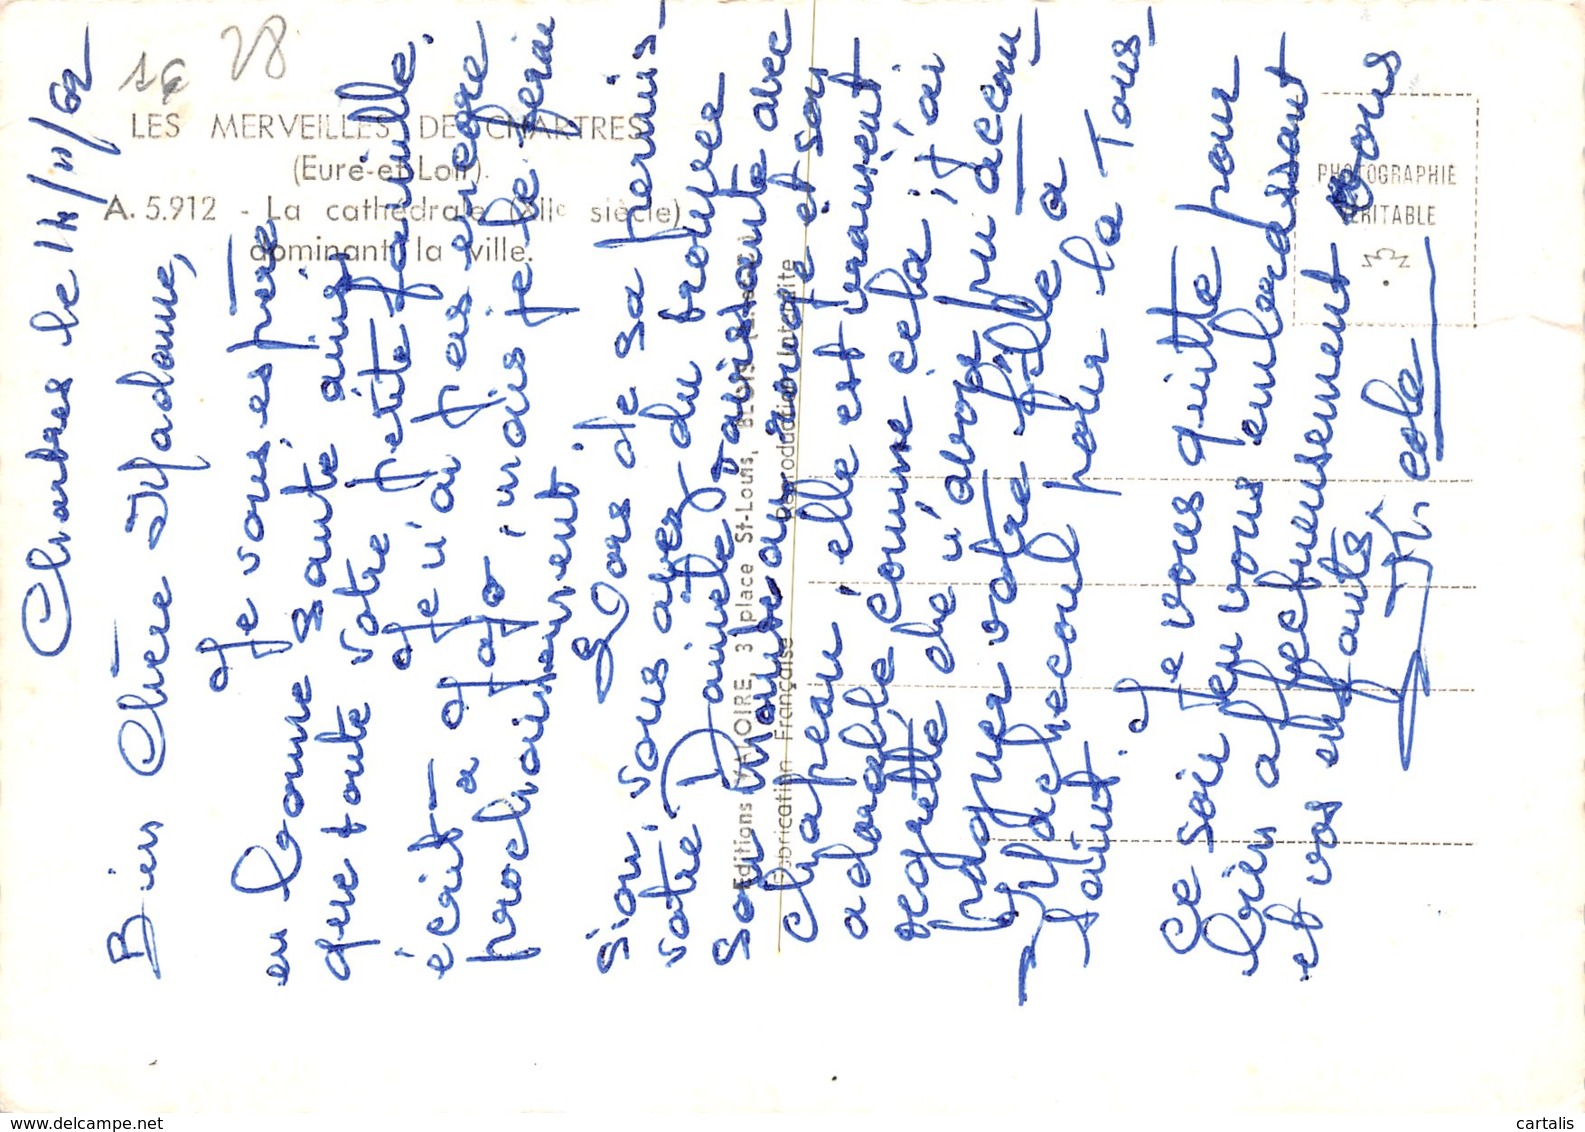 16 28
LES MERVEILLES DE CHARTRES
(Eure-et-Loir).
A. 5.912 - La cathédrale (XIIe siècle)
dominant la ville.
PHOTOGRAPHIE
VÉRITABLE
Editions VALOIRE, 3 place St-Louis, BLOIS
Fabrication Française Reproduction Interdite
Chartres le 14/11/62
Bien Chère Madame,
Je vous espère
en bonne santé ainsi
que toute votre petite famille.
Je n'ai pas encore
écrit à Jojo, mais je le ferai
prochainement.
Lors de sa permis-
sion, vous avez du trouver
votre Daniel ravissante avec
son manteau rouge et son
chapeau, elle est vraiment
adorable comme cela ; j'ai
regretté de n'avoir pu accom-
pagner votre fille à
Machecoul pour la Tous-
saint.
Je vous quitte pour
ce soir en vous embrassant
bien affectueusement vous
et vos enfants.